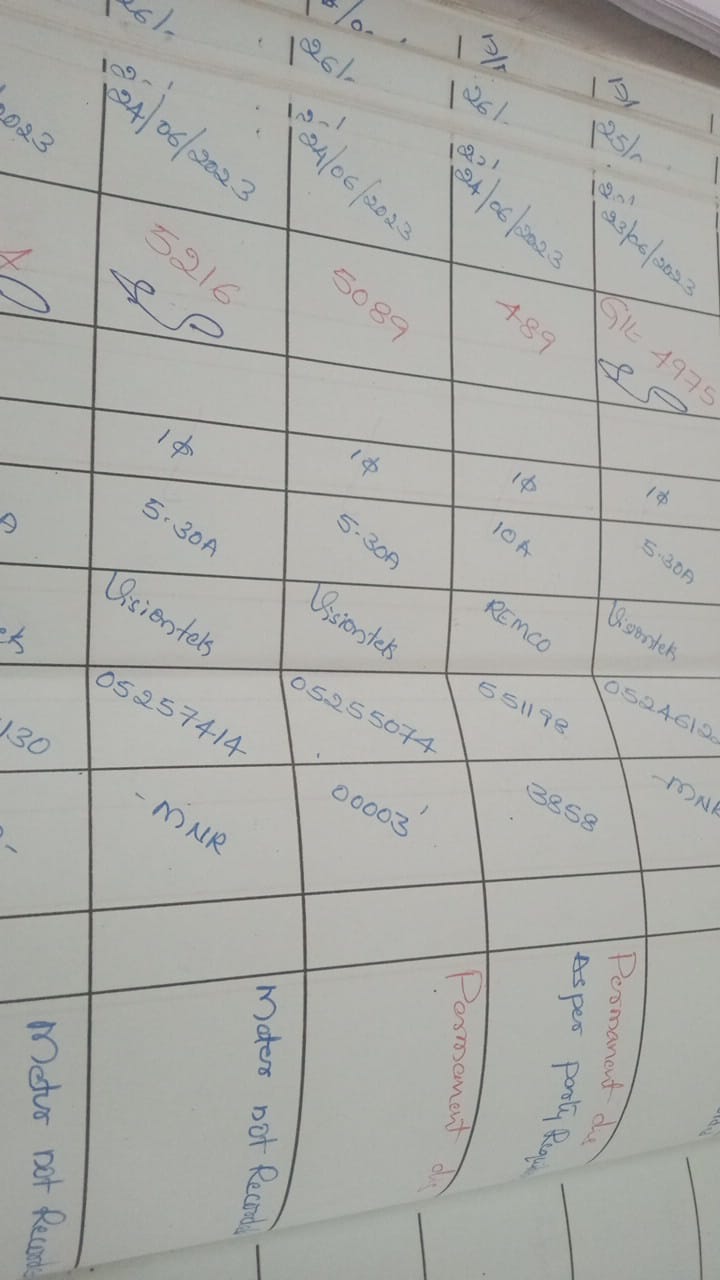 25/-
23/06/2023
GK- 4975
1φ
5-30A
Visiontek
-MNR
26/-
24/06/2023
489
1φ
10A
REMCO
551198
3858
Permanent dis
As per party
26/-
24/06/2023
5089
1φ
5-30A
Visiontek
05255074
00003
Permanent dis
26/-
24/06/2023
5216
1φ
5-30A
Visiontek
05257414
-MNR
Meter not Recorde
2023
130
Meter not Recorde